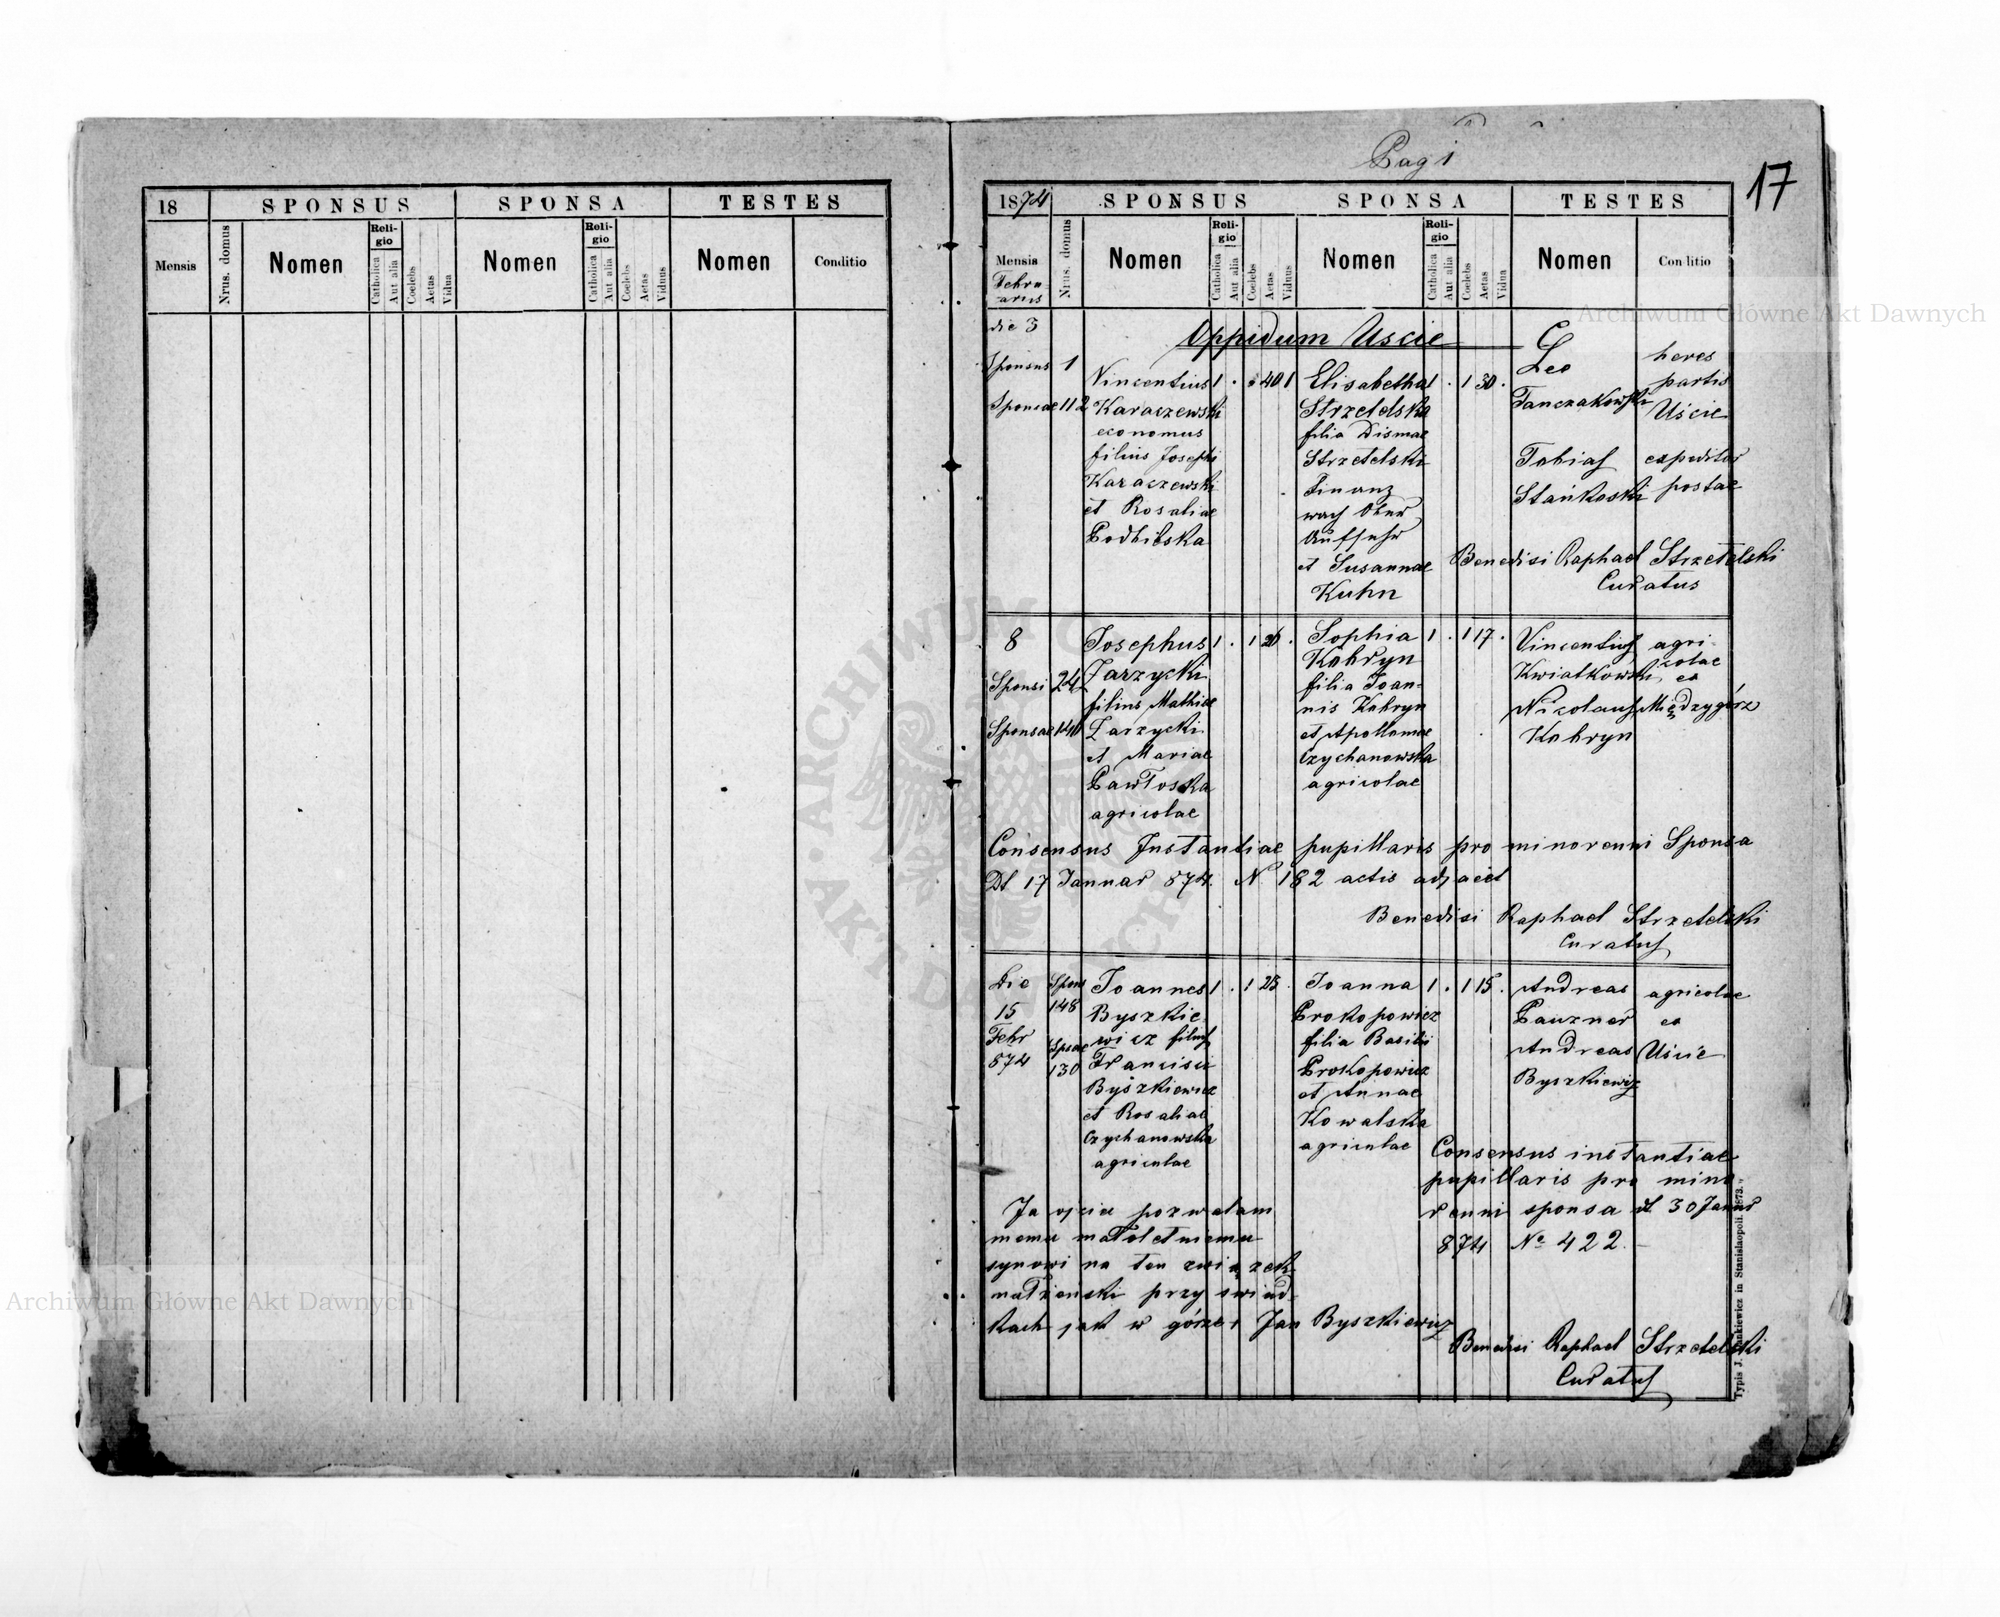 18
SPONSUS
SPONSA
TESTES
Mensis
Nrus. domus
Nomen
Religio
Catholica
Aut alia
Coelebs
Aetas
Vidua
Nomen
Religio
Catholica
Aut alia
Coelebs
Aetas
Vidnus
Nomen
Conditio
Pagi
17
1874
SPONSUS
SPONSA
TESTES
Mensis
Februarius
Nrus. domus
Nomen
Reli-
gio
Catholica
Aut alia
Coelebs
Aetas
Vidnus
Nomen
Reli-
gio
Catholica
Aut alia
Coelebs
Aetas
Vidua
Nomen
Conditio
die 3
Oppidum Uscie
Sponsus 1
Sponsae 112
Vincentius 1 . . 40 1
Karaczewski
economus
filius Josephi
Karaczewski
et Rosaliae
Podhilska
Elisabetha 1 . 1 30 .
Strzetelska
filia Dismae
Strzetelski
Finanz
wach Ober
Aufsehr
et Susannae
Kuhn
Leo
Tanczakowski
heres
partis
Uście
Tobias
Stańkoski
expeditor
postae
Benedixi Raphael Strzetelski
Curatus
8
Sponsi 24
Sponsae 140
Josephus 1 . 1 26 .
Zarzycki
filius Mathiae
Zarzycki
et Mariae
Pawłoska
agricolae
Sophia 1 . 1 17 .
Kobryn
filia Joan-
nis Kobryn
et Apolloniae
Czychanowska
agricolae
Vincentius
Kwiatkowski
Nicolaus
Kobryn
agri-
colae
ex
Międzygórz
Consensus Instantiae pupillaris pro minorenni Sponsa
Dt 17 Januar 874. N. 182 actis adjacet
Benedixi Raphael Strzetelski
Curatus
Die
15
Febr
874
Spons
148
Spsae
130
Joannes 1 . 1 25 .
Byszkie-
wicz filius
Francisci
Byszkiewicz
et Rosaliae
Czychanowska
agricolae
Joanna 1 . 1 15 .
Prokopowicz
filia Basilii
Prokopowicz
et Annae
Kowalska
agricolae
Andreas
Pauzner
Andreas
Byszkiewicz
agricolae
ex
Uście
Consensus instantiae
pupillaris pro mino
renni sponsa dt 30 Januar
874 No 422.
Ja ojciec pozwalam
memu małoletniemu
synowi na ten związek
małżeński przy świad-
kach jak w górze. Jan Byszkiewicz
Benedixi Raphael Strzetelski
Curatus
Typis J. Dankiewicz in Stanislaopoli. 1873.
Archiwum Główne Akt Dawnych
Archiwum Główne Akt Dawnych